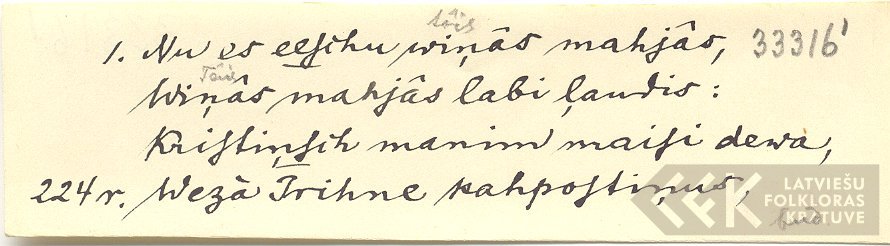 tâis
1. Nu es eeſchu wiņâs mahjâs, 33316¹
Wiņâs mahjâs labi ļaudis:
Kriſtiņſch manim maiſi dewa,
224 r. Wezâ Trihne kahpoſtiņus,
LATVIEŠU
FOLKLORAS
KRĀTUVE